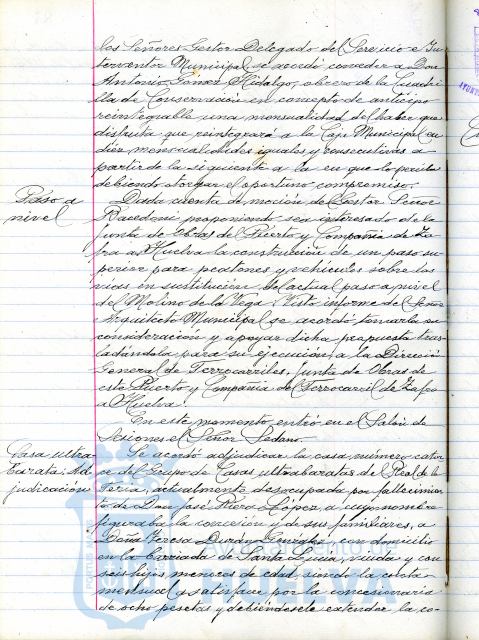 los Señores Gestor Delegado del Servicio e In-
terventor Municipal, se acordó conceder a Don
Antonio Gomez Hidalgo, obrero de la Cuadri-
lla de Conservación en concepto de anticipo
reintegrable una mensualidad del haber que
disfruta que reintegrará a la Caja Municipal en
diez mensualidades iguales y consecutivas a
partir de la siguiente a la en que lo perciba
debiendo otorgar el oportuno compromiso.
Paso a
nivel
Dada cuenta de moción del Gestor Señor
proponiendo sea interesado de la
Junta de Obras del Puerto y Compañia de Za-
fra a Huelva la construcción de un paso su-
perior para peatones y vehiculos sobre las
vias en sustitución del actual paso a nivel
del Molino de la Vega; Visto informe del Señor
Arquitecto Municipal se acordó tomarla en
consideración y apoyar dicha propuesta tras-
ladándola para su ejecución, a la Dirección
General de Ferrocarriles, Junta de Obras de
este Puerto y Compañia del Ferrocarril de Zafra
a Huelva.
En este momento entró en el Salón de
Sesiones el Señor Sedano.
Casa ultra-
barata. Ad-
judicación
Se acordó adjudicar la casa número cator-
ce del Grupo de Casas ultrabaratas del Real de la
Feria, actualmente desocupada por fallecimien-
to de Don José Riero Lopez, a cuyo nombre
figuraba la concesión y de sus familiares, a
Doña Teresa Durán Gonzalez, con domicilio
en la barriada de Santa Lucia, viuda y con
seis hijos menores de edad, siendo la cuota
mensual a satisfacer por la concesionaria
de ocho pesetas y debiéndosele extender la co-
Ayuntamiento de
HUELVA